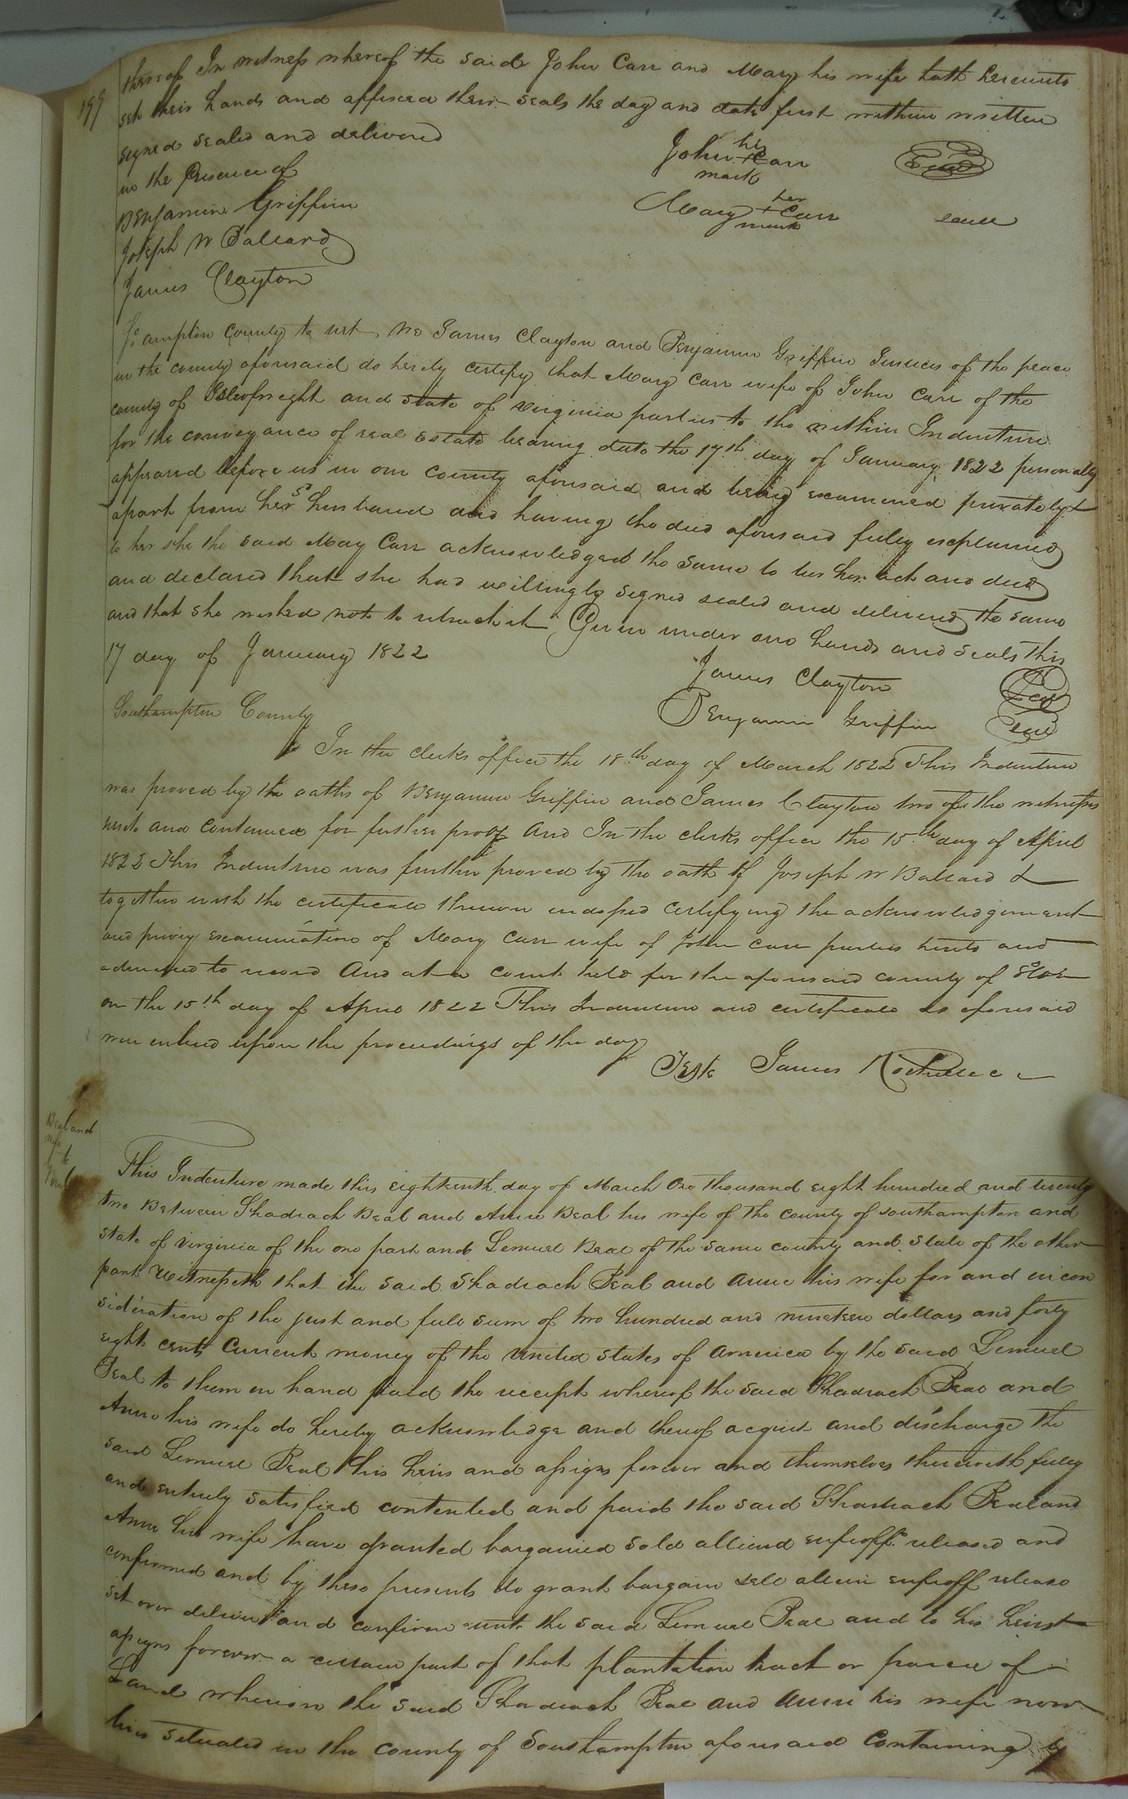 199
thereof In witness whereof the said John Carr and Mary his wife hath hereunto
set their hands and affixed their seals the day and date first within written
signed sealed and delivered
in the Presence of
John his + Carr mark
Seal
Benjamin Griffin
Mary her + Carr mark
seal
Joseph W Ballard
James Clayton
So ampton County to wit We James Clayton and Benjamin Griffin Justices of the peace
in the county aforesaid do hereby certify that Mary Carr wife of John Carr of the
county of Isleofwight and state of Virginia parties to the within Indenture
for the conveyance of real estate bearing date the 17th day of January 1822 personally
appeared before us in our county aforesaid and being examined privately &
apart from her husband and having the deed aforesaid fully explained
to her she the said Mary Carr acknowledged the same to be her act and deed
and declared that she had willingly signed sealed and delivered the same
and that she wished not to retract it Given under our hands and seals this
17 day of January 1822
James Clayton Seal
Benjamin Griffin Seal
Southampton County
In the clerks office the 18th day of March 1822 This Indenture
was proved by the oaths of Benjamin Griffin and James Clayton two of the witnesses
hereto and continued for further proof And In the clerks office the 15th day of April
1822 This Indenture was further proved by the oath of Joseph W Ballard &
together with the certificate thereon indorsed certifying the acknowledgement
and privy examination of Mary Carr wife of John Carr parties hereto and
admitted to record And at a court held for the aforesaid county of
on the 15th day of April 1822 This Indenture and certificate as aforesaid
were entered upon the proceedings of the day
Teste James Rochelle c
Beal and
wife
to
Beal
This Indenture made this eighteenth day of March One thousand eight hundred and twenty
two Between Shadrach Beal and Anne Beal his wife of the county of southampton and
state of Virginia of the one part and Lemuel Beal of the same county and state of the other
part Witnesseth that the said Shadrach Beal and Anne his wife for and in con
sideration of the just and full sum of two hundred and nineteen dollars and forty
eight cents Current money of the United States of America by the said Lemuel
Beal to them in hand paid the receipt whereof the said Shadrach Beal and
Anne his wife do hereby acknowledge and thereof acquit and discharge the
said Lemuel Beal his heirs and assigns forever and themselves therewith fully
and entirely satisfied contented and paid the said Shadrach Beal and
Anne his wife have granted bargained sold aliend enfeoff released and
confirmed and by these presents do grant bargain sell alien enfeoff release
set over deliver and confirm unto the said Lemuel Beal and to his heirs &
assigns forever a certain part of that plantation tract or parcel of
Land whereon the said Shadrach Beal and Anne his wife now
lives situated in the county of Southampton aforesaid containing by